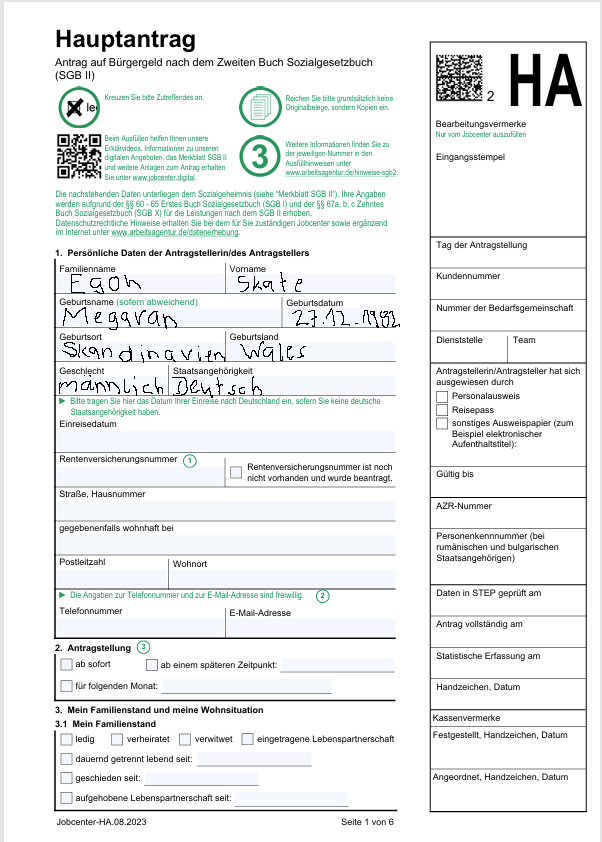 Hauptantrag
Antrag auf Bürgergeld nach dem Zweiten Buch Sozialgesetzbuch
(SGB II)
Kreuzen Sie bitte Zutreffendes an.
Reichen Sie bitte grundsätzlich keine
Originalbelege, sondern Kopien ein.
Beim Ausfüllen helfen Ihnen unsere
Erklärvideos. Informationen zu unseren
digitalen Angeboten, das Merkblatt SGB II
und weitere Anlagen zum Antrag erhalten
Sie unter www.jobcenter.digital.
3
Weitere Informationen finden Sie zu
der jeweiligen Nummer in den
Ausfüllhinweisen unter
www.arbeitsagentur.de/hinweise-sgb2.
Die nachstehenden Daten unterliegen dem Sozialgeheimnis (siehe "Merkblatt SGB II"). Ihre Angaben
werden aufgrund der §§ 60 - 65 Erstes Buch Sozialgesetzbuch (SGB I) und der §§ 67a, b, c Zehntes
Buch Sozialgesetzbuch (SGB X) für die Leistungen nach dem SGB II erhoben.
Datenschutzrechtliche Hinweise erhalten Sie bei dem für Sie zuständigen Jobcenter sowie ergänzend
im Internet unter www.arbeitsagentur.de/datenerhebung.
1. Persönliche Daten der Antragstellerin/des Antragstellers
Familienname Vorname
Egon Skate
Geburtsname (sofern abweichend) Geburtsdatum
Megavan 27.12.1982
Geburtsort Geburtsland
Skandinavien Wales
Geschlecht Staatsangehörigkeit
männlich Deutsch
Bitte tragen Sie hier das Datum Ihrer Einreise nach Deutschland ein, sofern Sie keine deutsche
Staatsangehörigkeit haben.
Einreisedatum
Rentenversicherungsnummer 1
Rentenversicherungsnummer ist noch
nicht vorhanden und wurde beantragt.
Straße, Hausnummer
gegebenenfalls wohnhaft bei
Postleitzahl Wohnort
Die Angaben zur Telefonnummer und zur E-Mail-Adresse sind freiwillig. 2
Telefonnummer E-Mail-Adresse
2. Antragstellung 3
ab sofort ab einem späteren Zeitpunkt:
für folgenden Monat:
3. Mein Familienstand und meine Wohnsituation
3.1 Mein Familienstand
ledig verheiratet verwitwet eingetragene Lebenspartnerschaft
dauernd getrennt lebend seit:
geschieden seit:
aufgehobene Lebenspartnerschaft seit:
Jobcenter-HA.08.2023 Seite 1 von 6
2 HA
Bearbeitungsvermerke
Nur vom Jobcenter auszufüllen
Eingangsstempel
Tag der Antragstellung
Kundennummer
Nummer der Bedarfsgemeinschaft
Dienststelle Team
Antragstellerin/Antragsteller hat sich
ausgewiesen durch
Personalausweis
Reisepass
sonstiges Ausweispapier (zum
Beispiel elektronischer
Aufenthaltstitel):
Gültig bis
AZR-Nummer
Personenkennnummer (bei
rumänischen und bulgarischen
Staatsangehörigen)
Daten in STEP geprüft am
Antrag vollständig am
Statistische Erfassung am
Handzeichen, Datum
Kassenvermerke
Festgestellt, Handzeichen, Datum
Angeordnet, Handzeichen, Datum